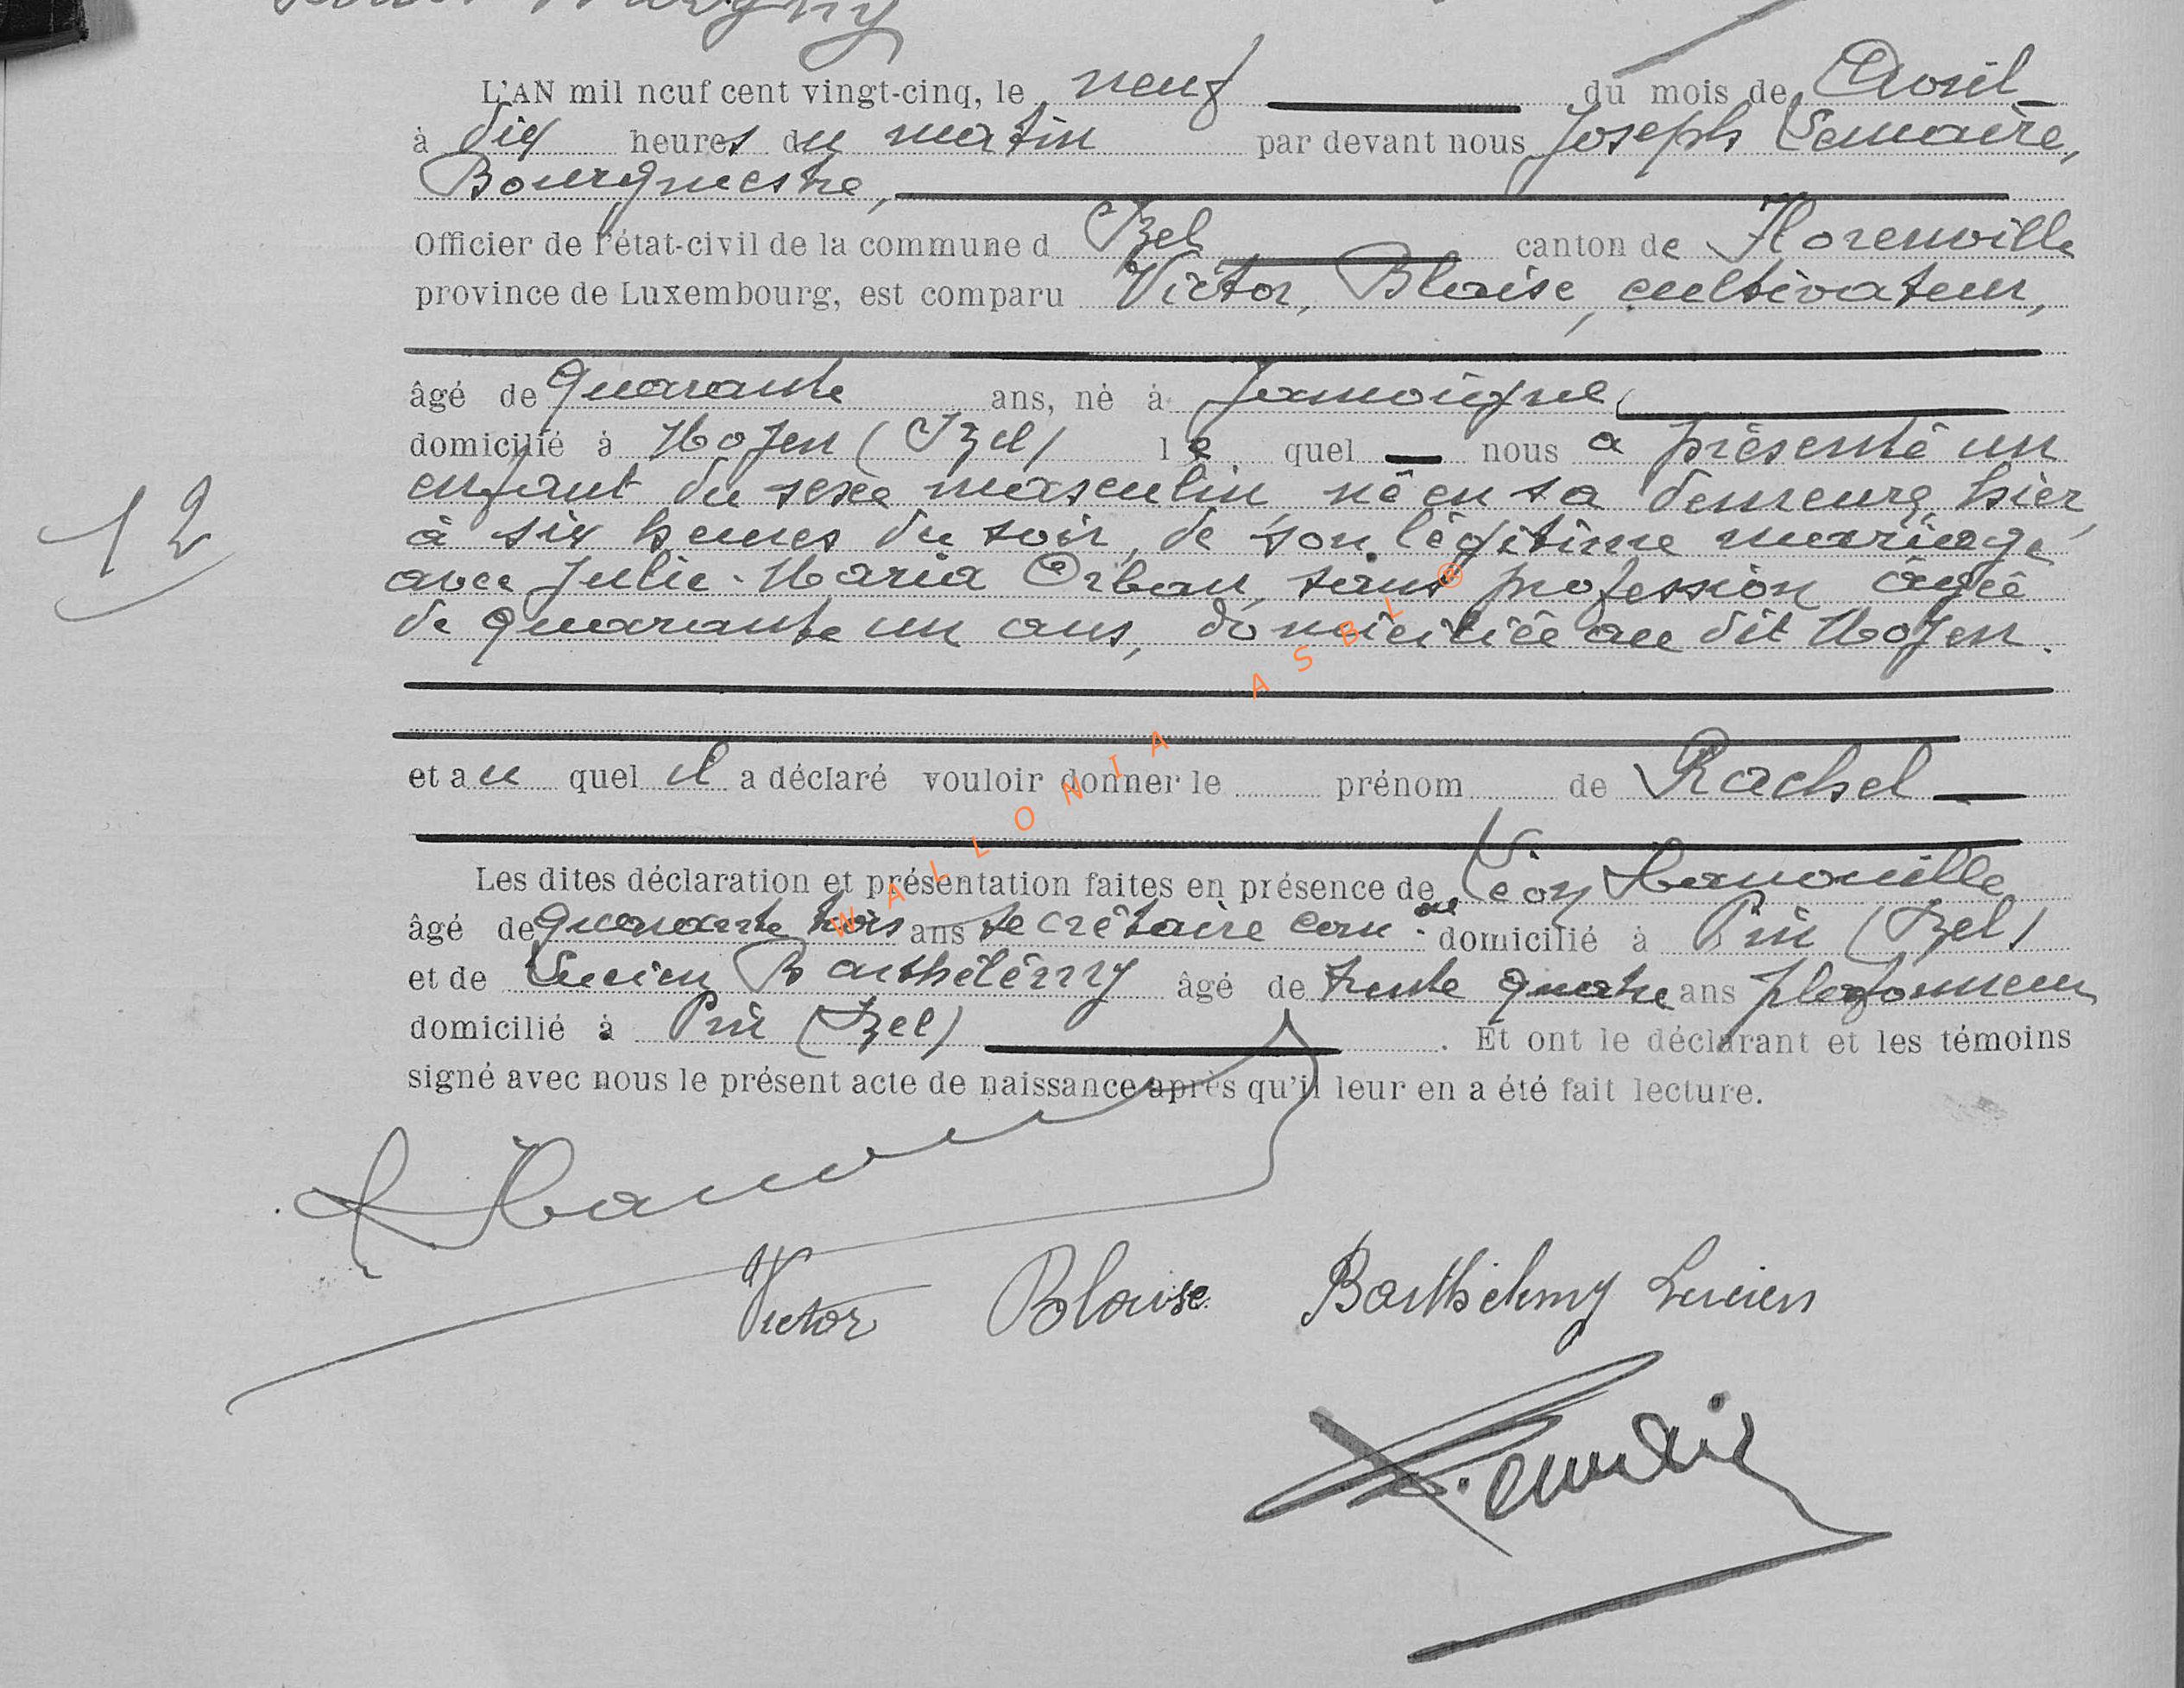 L'AN mil neuf cent vingt-cinq, le neuf du mois de Avril
à dix heures du matin par devant nous Joseph Lemaire,
Bourgmestre,
Officier de l'état-civil de la commune d Izel canton de Florenville
province de Luxembourg, est comparu Victor, Blaise, cultivateur,
âgé de quarante ans, né à Jamoigne,
domicilié à Moyen (Izel) le quel nous a présenté un
enfant du sexe masculin, né en sa demeure, hier,
à six heures du soir, de son légitime mariage
avec Julie-Maria Orban, sans profession âgée
de quarante un ans, domiciliée au dit Moyen.
12
et au quel il a déclaré vouloir donner le prénom de Rachel
Les dites déclaration et présentation faites en présence de Léon
âgé de quarante trois ans secrétaire com.al domicilié à Pin (Izel)
et de Lucien Barthélémy âgé de trente quatre ans plafonneur
domicilié à Pin (Izel). Et ont le déclarant et les témoins
signé avec nous le présent acte de naissance après qu'il leur en a été fait lecture.
Victor Blaise Barthélemy Lucien
J. Lemaire
WALLONIA ASBL ®